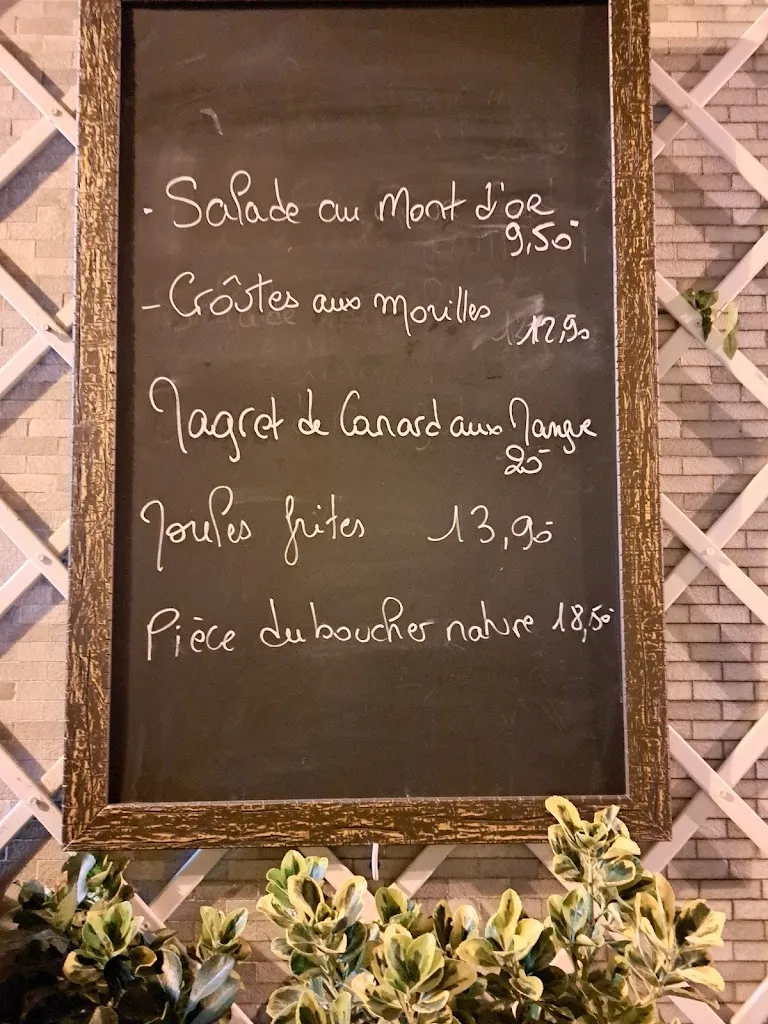 - Salade au Mont d'or
9,50
- Croûtes aux morilles 12,90
Magret de Canard aux Mangue
25
Moules frites 13,90
Pièce du boucher nature 18,50